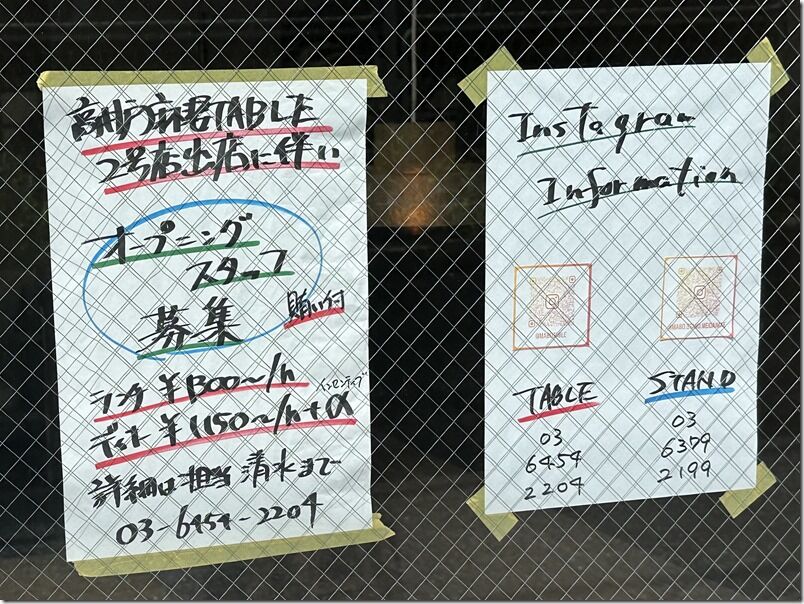 麻婆TABLE
2号店出店に伴い
オープニング
スタッフ
募集
賄い付
ランチ ¥1300〜/h
インセンティブ
ディナー ¥1150〜/h+α
詳細は担当 清水まで
03-6454-2204
Instagram
Information
TABLE
03
6454
2204
STAND
03
6379
2199